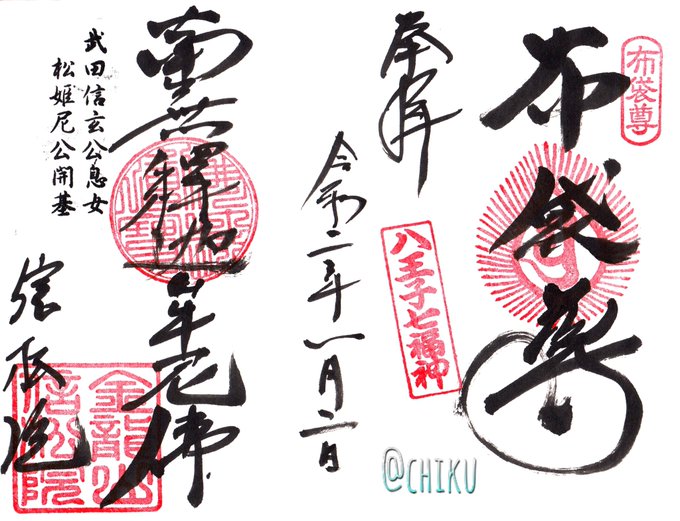 布袋尊
布袋尊
奉拝
八王子七福神
令和二年八月二日
南無釋迦牟尼佛
武田信玄公息女
松姫尼公開基
信松院
金龍山
信松院
@CHIKU